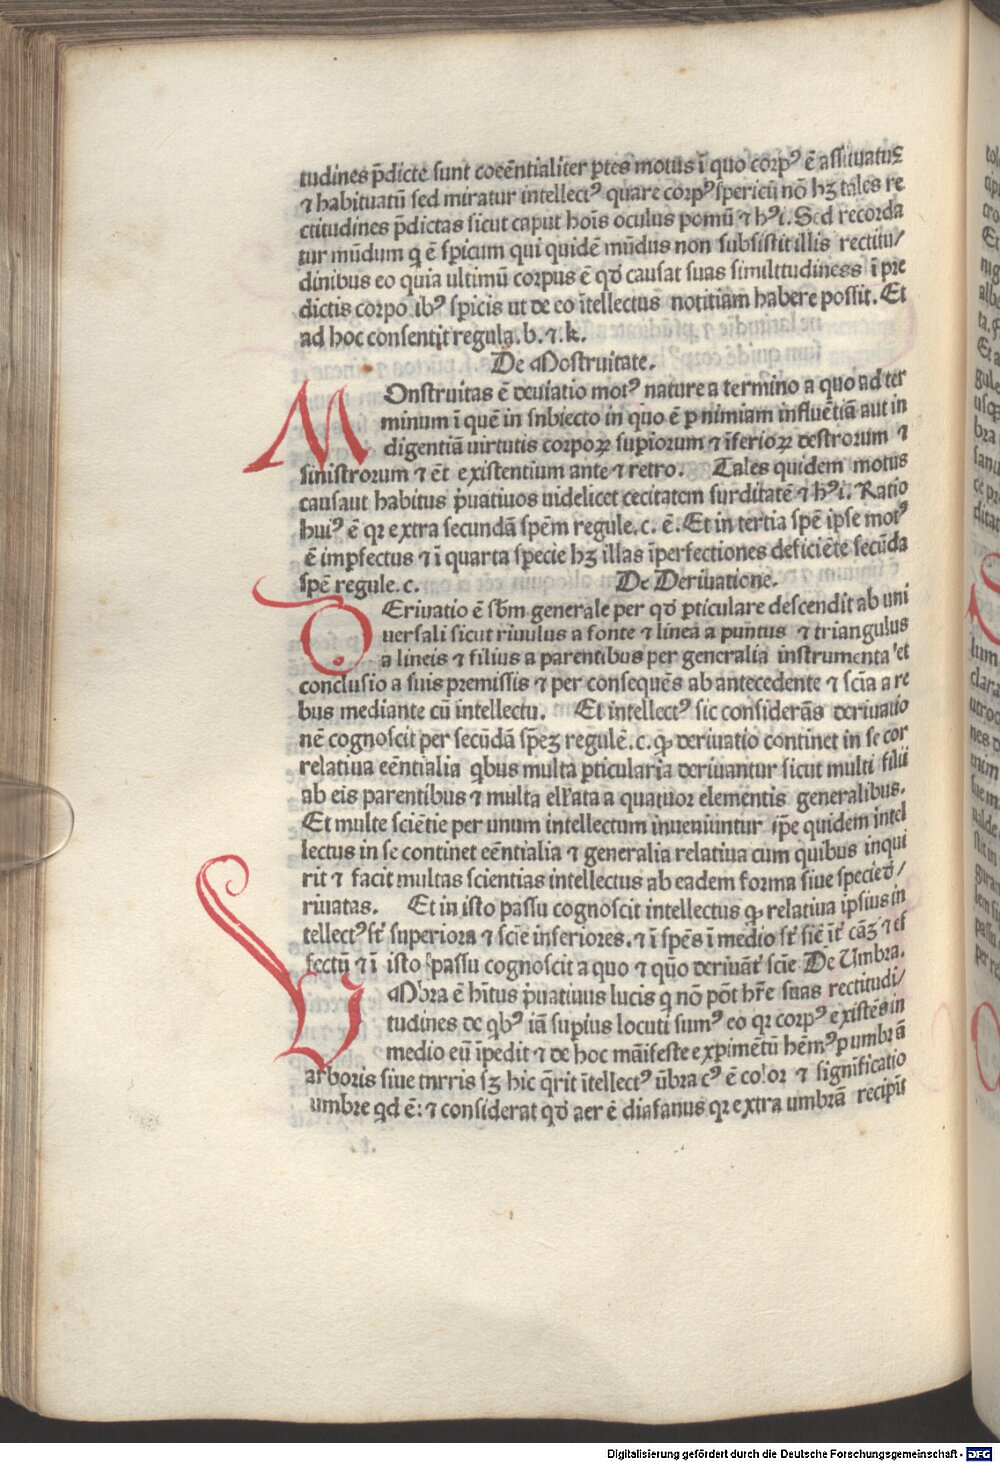 tudines p̄dicte sunt coeēntialiter ꝑtes motus ī quo corpꝰ ē assituatuꝫ
⁊ habituatū sed miratur intellectꝰ quare corpꝰ spericū nō hꝫ tales re
ctitudines p̄dictas sicut caput hoīs oculus pomū ⁊ hꝰi. Sed recorda
tur mūdum q ē spicum qui quidē mūdus non subsistit illis rectitu/
dinibus eo quia ultimū corpus ē qđ causat suas similttudiness ī pre
dictis corpo ibꝰ spicis ut de eo ītellectus notitiam habere possit. Et
ad hoc consentit regula. b. ⁊. k.
De Mostruitate.
MOnstruitas ē deuiatio motꝰ nature a termino a quo ad ter
minum ī quē in snbiecto in quo ē ꝑ nimiam influētiā aut in
digentiā uirtutis corpoꝝ supiorum ⁊ īferioꝝ destrorum ⁊
sinistrorum ⁊ ēt existentium ante ⁊ retro. Tales quidem motus
causaut habitus p̄uatiuos uidelicet cecitatem surditatē ⁊ hꝰi. Ratio
huiꝰ ē qꝛ extra secundā spēm regule. c. ē. Et in tertia spē ipse motꝰ
ē imꝑfectus ⁊ ī quarta specie hꝫ illas īperfectiones deficiēte secūda
spē regule. c. De Deriuatione.
DEriuatio ē sꝫm generale per qđ ꝑticulare descendit ab uni
uersali sicut riuulus a fonte ⁊ linea a puntus ⁊ triangulus
a lineis ⁊ filius a parentibus per generalia instrumenta et
conclusio a suis premissis ⁊ per consequēs ab antecedente ⁊ scīa a re
bus mediante cū intellectu. Et intellectꝰ sic considerās deriuatio
nē cognoscit per secūdā spēꝫ regulē. c. ꝙ deriuatio continet in se cor
relatiua eēntialia qbus multa ꝑticularia deriuantur sicut multi filii
ab eis parentibus ⁊ multa elꝭata a quatuor elementis generalibus.
Et multe sciētie per unum intellectum inueniuntur ip̄e quidem intel
lectus in se continet eēntialia ⁊ generalia relatiua cum quibus inqui
rit ⁊ facit multas scientias intellectus ab eadem forma siue specie đ/
riuatas. Et in isto passu cognoscit intellectus ꝙ relatiua ipsius in
tellectꝰ sī superiora ⁊ scīe inferiores. ⁊ ī spēs ī medio sī siē īt̄ cāꝫ ⁊ ef
fectū ⁊ ī isto passu cognoscit a quo ⁊ quo deriuāt̄ scīe De Umbra.
VMbra ē hītus p̄uatiuus lucis q nō pōt hr̄e suas rectitudi/
tudines de qbꝰ iā supius locuti sumꝰ eo qꝛ corpꝰ existēs in
medio eū īpedit ⁊ de hoc māifeste expimētū hēmꝰ ꝑ umbrā
arboris siue tnrris sꝫ hic q̄rit ītellectꝰ ūbra cꝰ ē color ⁊ significatio
umbre qd ē: ⁊ considerat qđ aer ē diafanus qꝛ extra umbrā recipīt
Digitalisierung gefördert durch die Deutsche Forschungsgemeinschaft - DFG